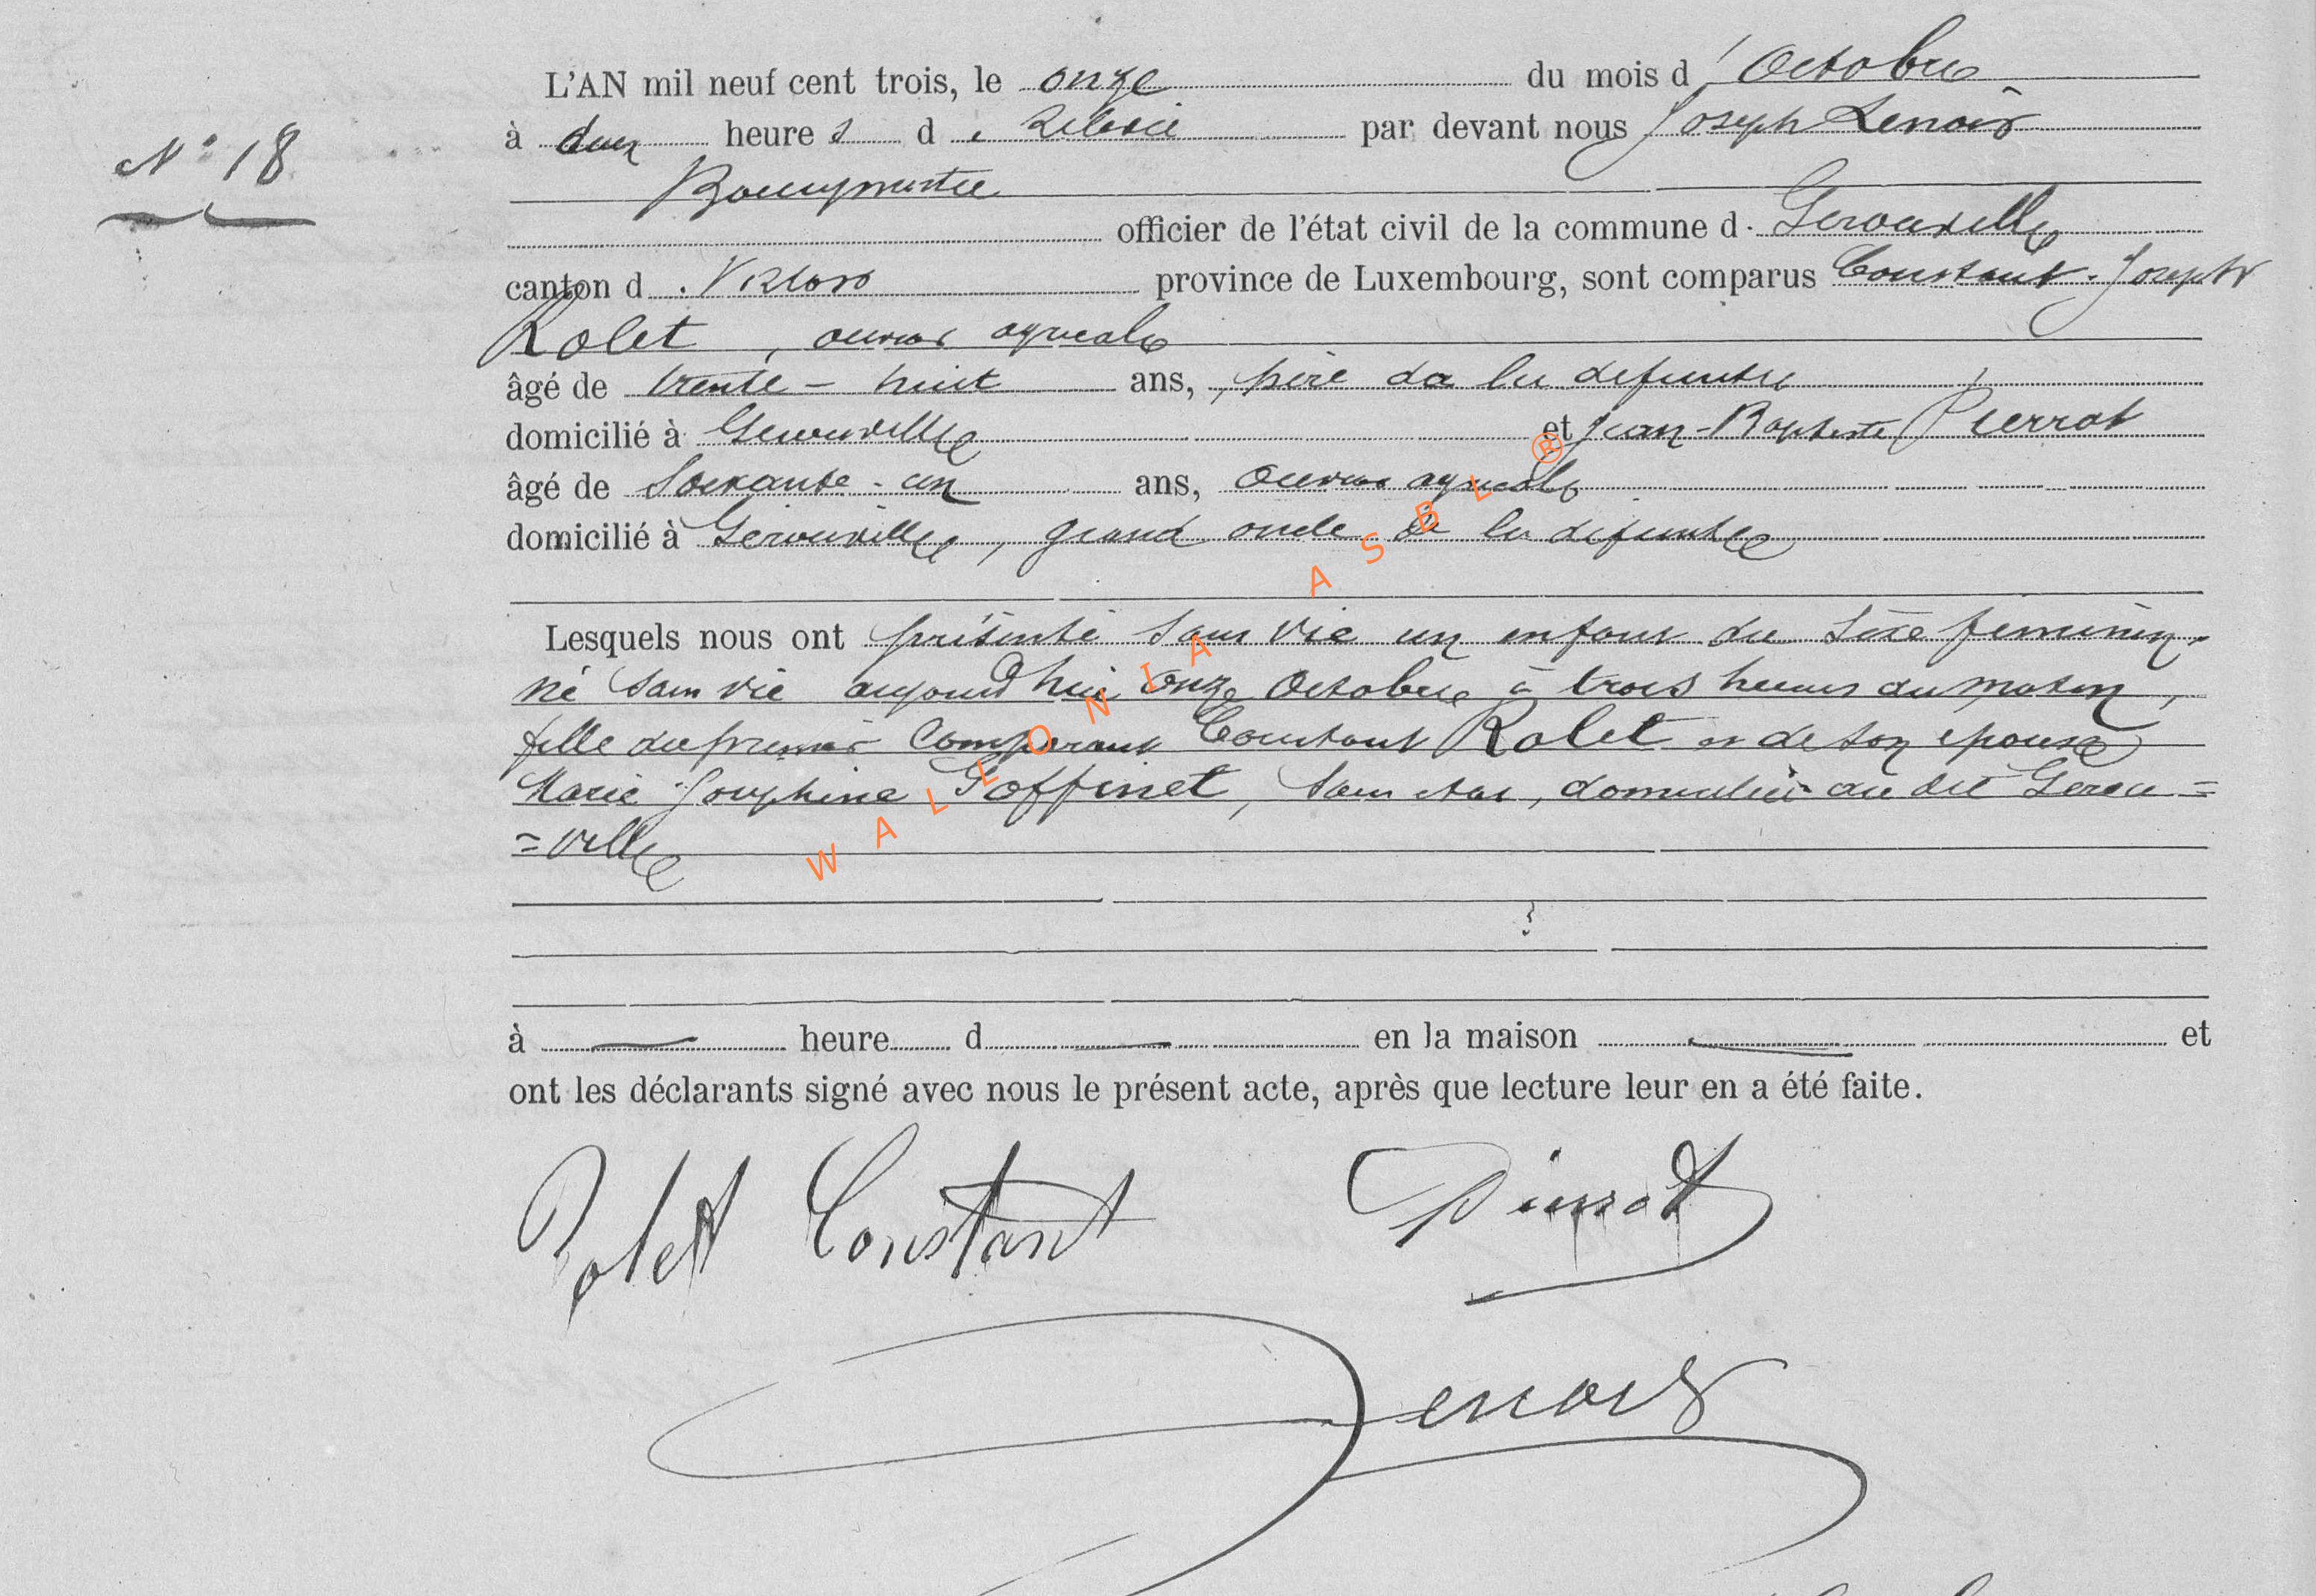 L'AN mil neuf cent trois, le onze du mois d'Octobre
N° 18
à deux heures de relevée par devant nous Joseph Lenoir
Bourgmestre
officier de l'état civil de la commune d. Gerouville
canton d. Virton province de Luxembourg, sont comparus Constant-Joseph
Rolet, ouvrier agricole
âgé de trente-huit ans, père de la defunte
domicilié à Gerouville et Jean-Baptiste Pierrot
âgé de Soixante-un ans, ouvrier agricole
domicilié à Gerouville, grand oncle de la defunte
Lesquels nous ont présenté sans vie un enfant du sexe féminin,
né sans vie aujourd'hui onze Octobre à trois heures du matin,
fille du premier Comparant Constant Rolet et de son epouse
Marie Josephine Goffinet, sans etat, domiciliée au dit Gerou=
=ville
WALLONIA ASBL ®
à heure d en la maison et
ont les déclarants signé avec nous le présent acte, après que lecture leur en a été faite.
Rolet Constant Pierrot
Lenoir